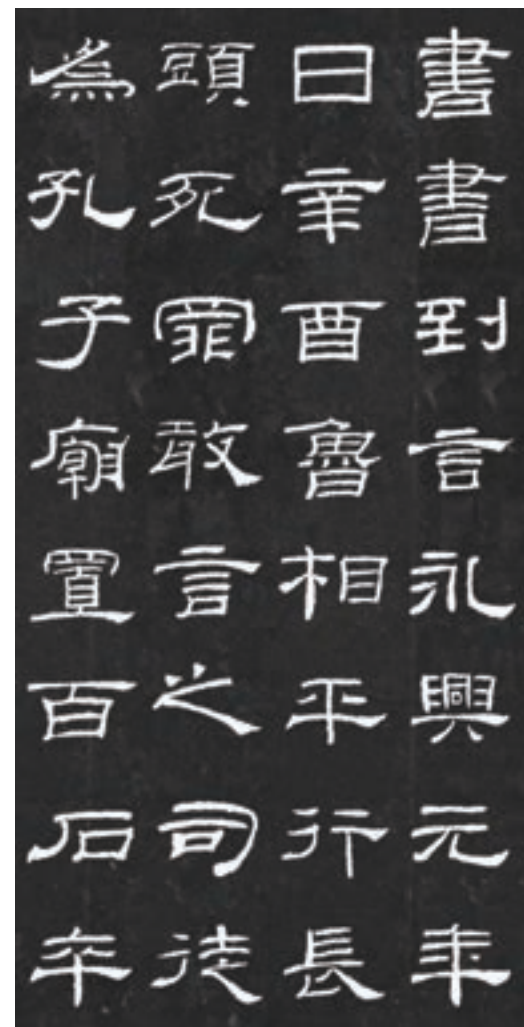 書書到言永興元年
日辛酉魯相平行長
頭死罪敢言之司徒
為孔子廟置百石卒